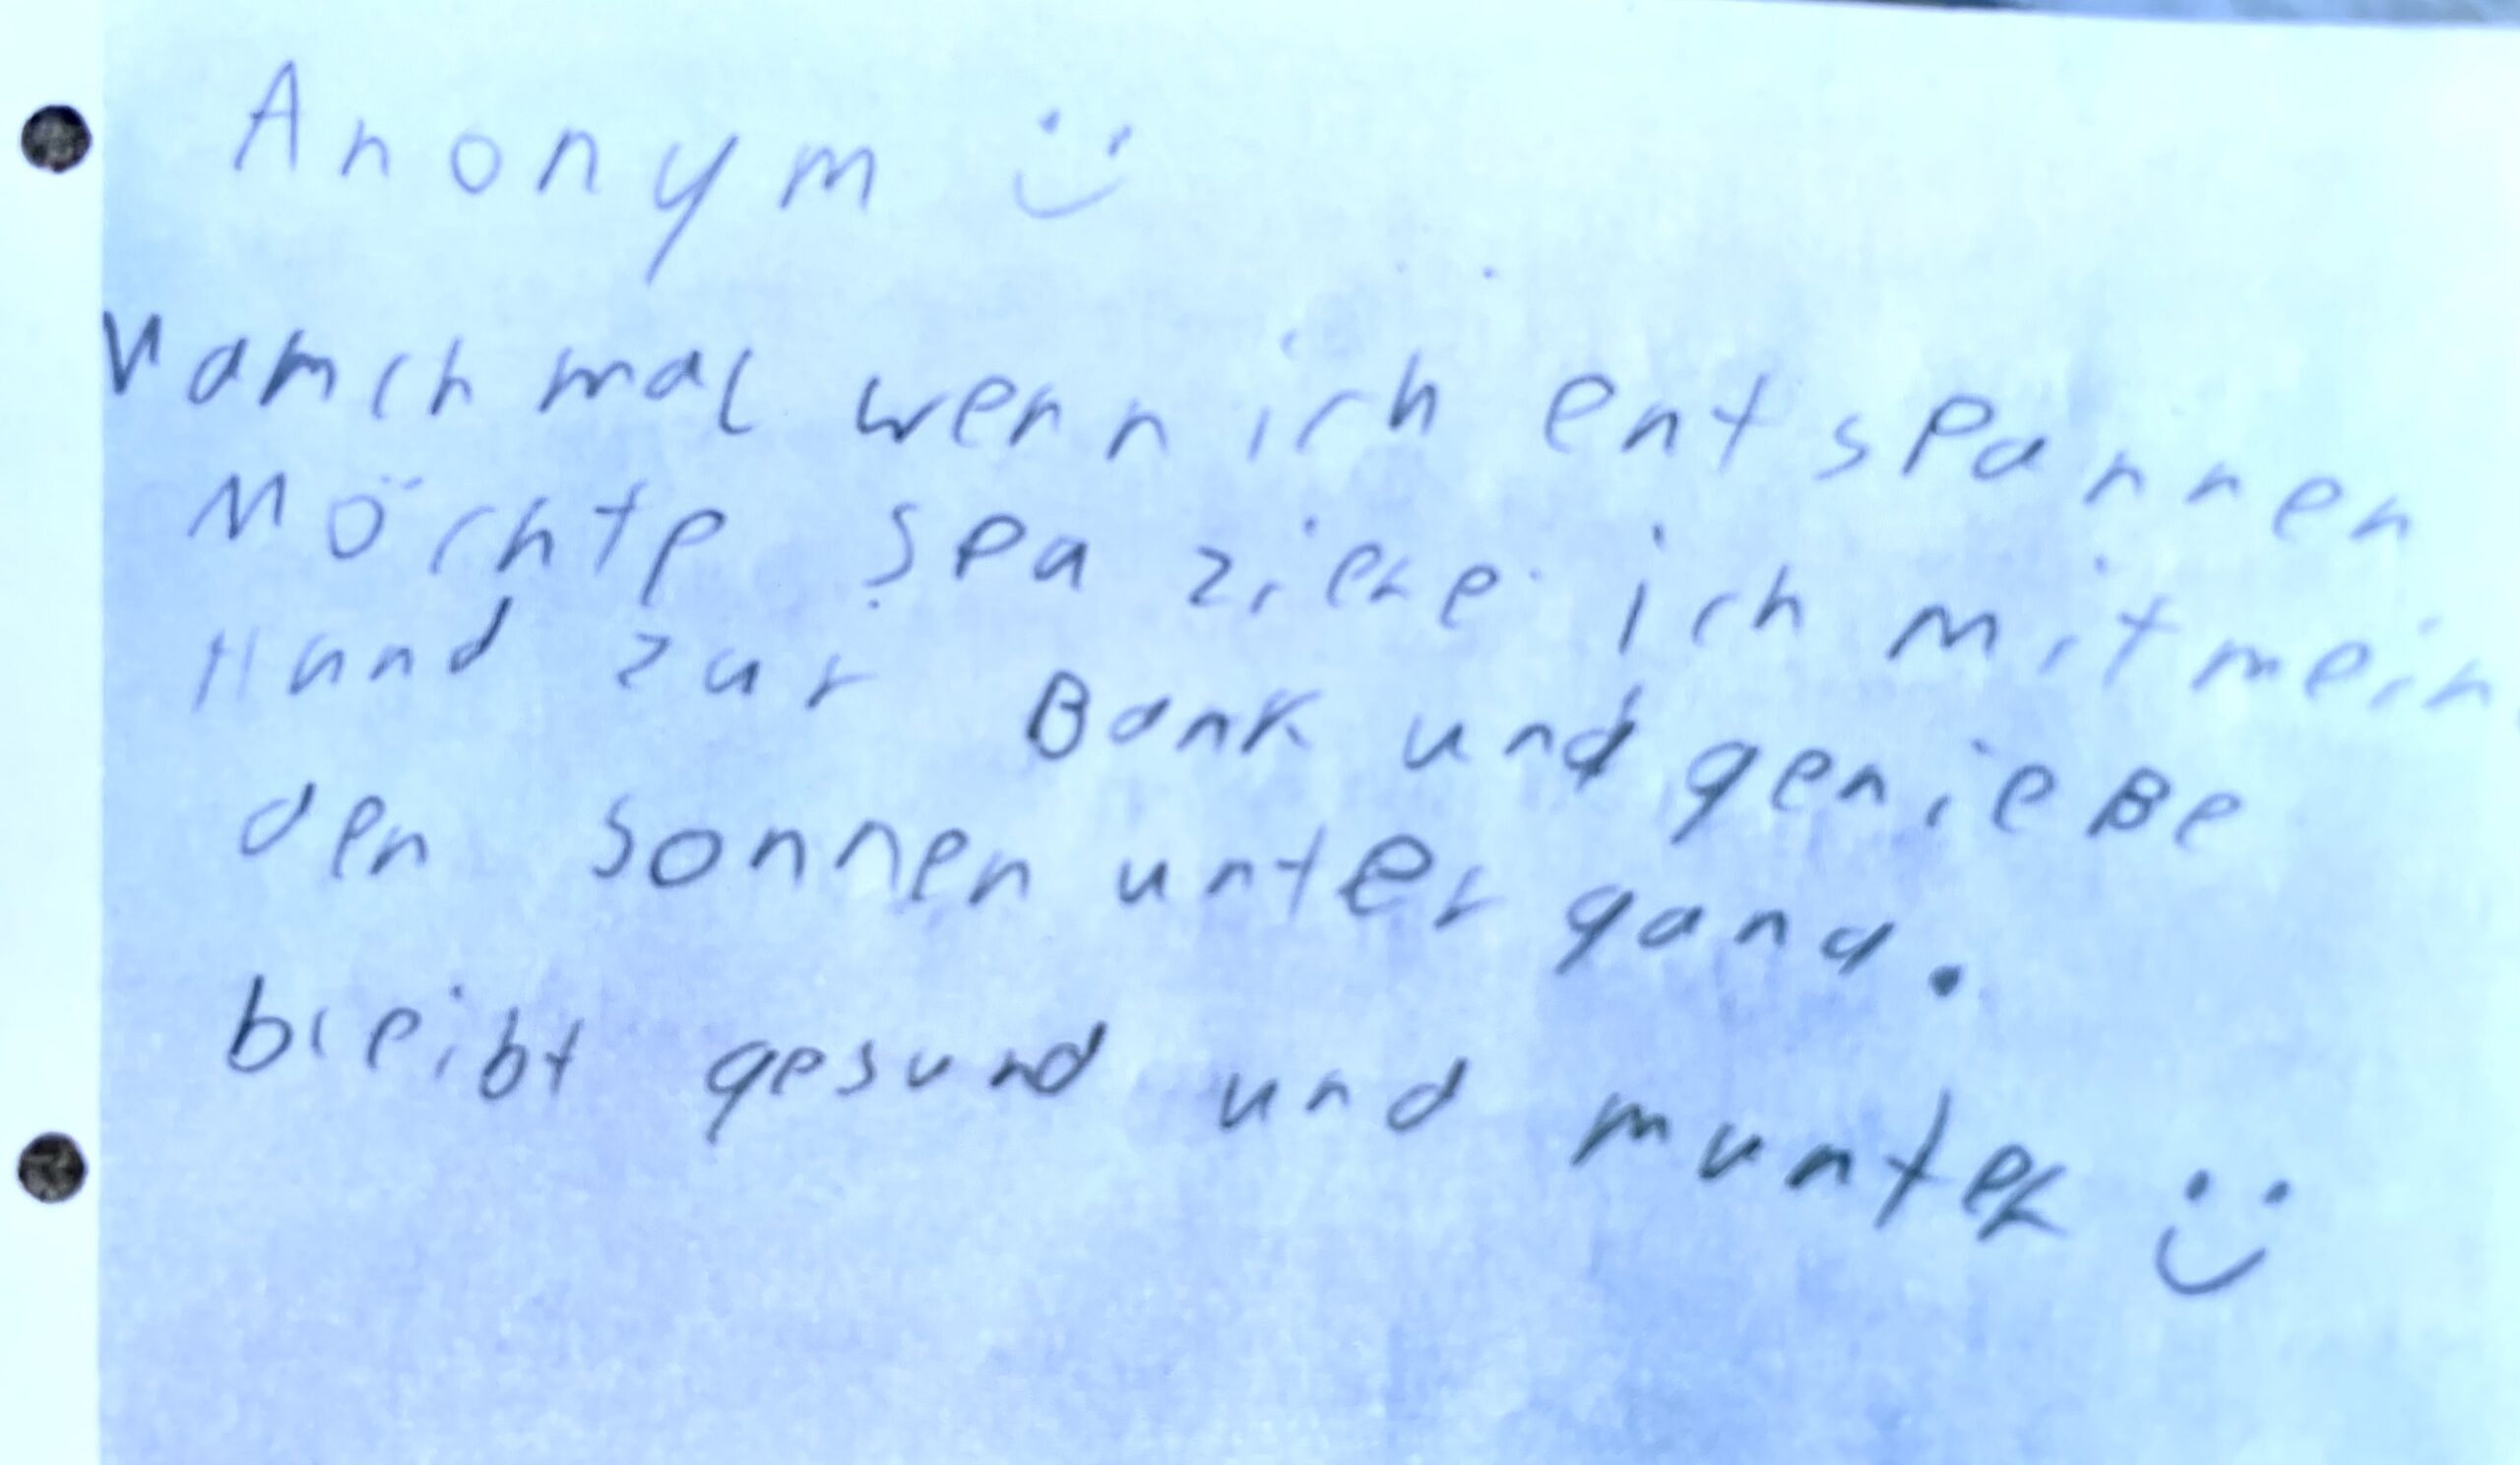 Anonym :)
Mamchmal wenn ich entspannen
Möchte spaziere ich mit mein
Hund zur Bank und genieße
den sonnenuntergang.
bleibt gesund und munter :)